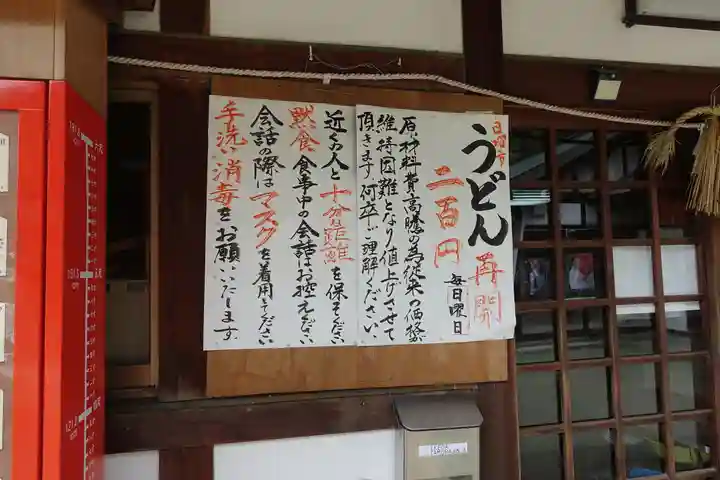 日曜市
うどん
再開
二百円
毎日曜日
原材料費高騰の為従来の価格が
維持困難となり値上げさせて
頂きます何卒ご理解ください
近くの人と十分な距離を保そください
黙食 食事中の会話はお控えください
会話の際はマスクを着用ください
手洗い消毒をお願いいたします